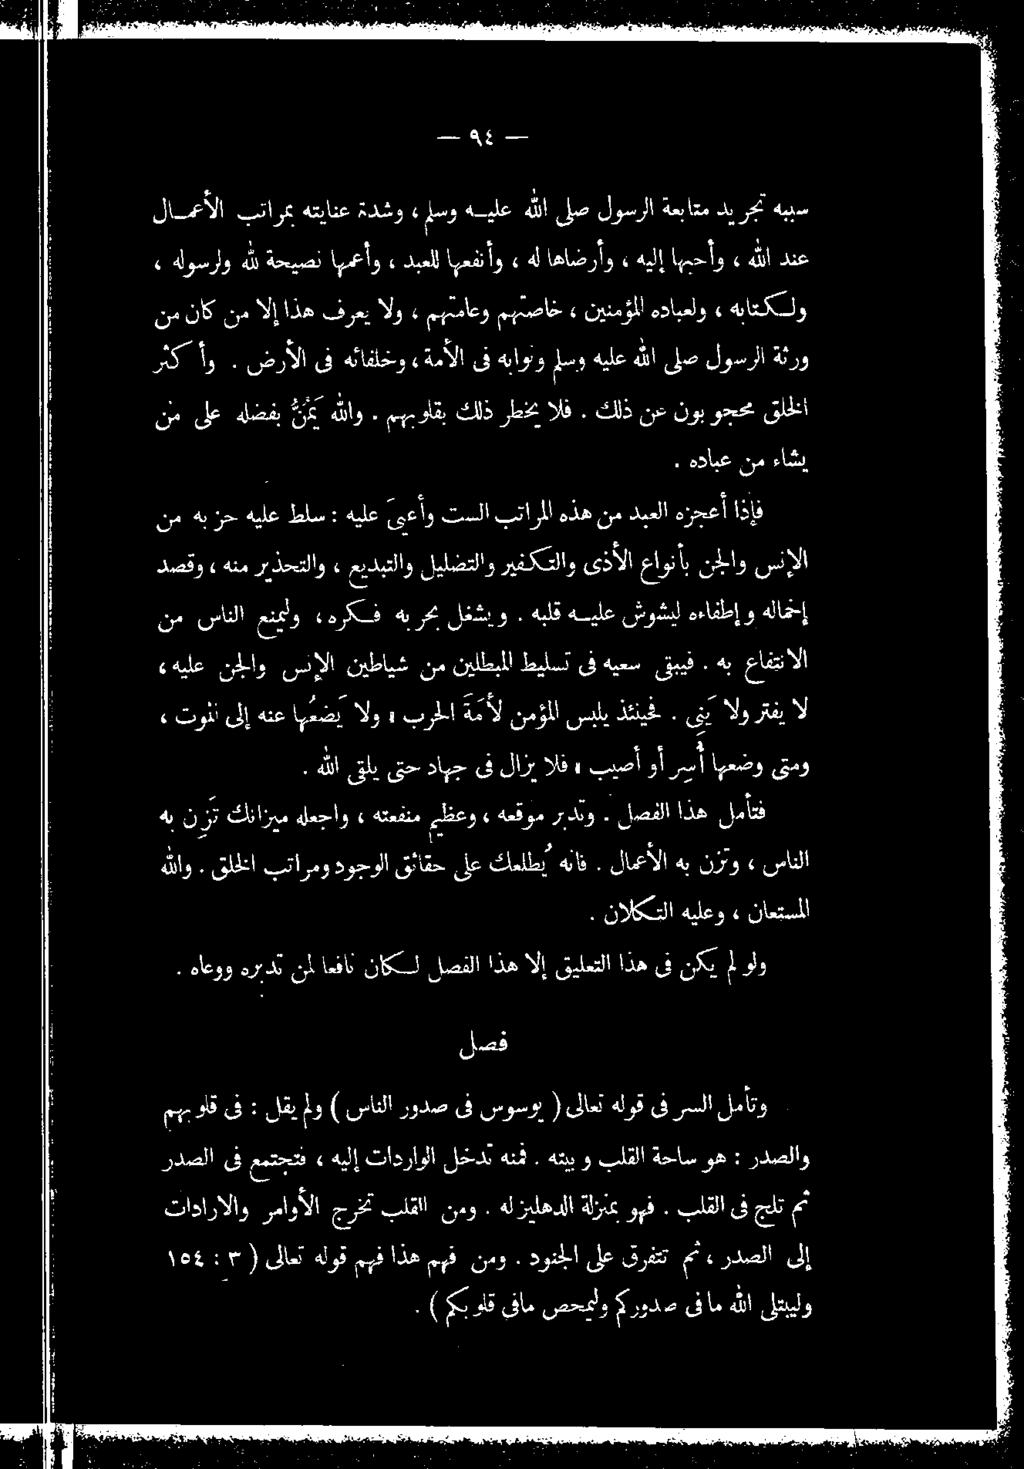 — ٩٤ —
سببه تجريد متابعة الرسول صلى الله عليه وسلم ، وشدة عنايته بمراتب الأعمال
عند الله ، وأحبها إليه ، وأرضاها له ، وأنفعها للعبد ، وأعمها نصيحة لله ولرسوله ،
ولكتابه ، ولعباده المؤمنين ، خاصتهم وعامتهم ، ولا يعرف هذا إلا من كان من
ورثة الرسول صلى الله عليه وسلم ونوابه فى الأمة ، وخلفائه فى الأرض . وأكثر
الخلق محجوبون عن ذلك . فلا يخطر ذلك بقلوبهم . والله يَمُنُّ بفضله على من
يشاء من عباده .
فإذا أعجزه العبد من هذه المراتب الست وأعيىَ عليه : سلط عليه حزبه من
الإنس والجن بأنواع الأذى والتكفير والتضليل والتبديع ، والتحذير منه ، وقصد
إخماله وإطفاءه ليشوش عليه قلبه . ويشغل بحربه فكره ، وليمنع الناس من
الانتفاع به . فيبقى سعيه فى تسليط المبطلين من شياطين الإنس والجن عليه ،
لا يفتر ولا يَنِى . فحينئذ يلبس المؤمن لأْمَةَ الحرب ، ولا يَضَعُها عنه إلى الموت ،
ومتى وضعها أُسِر أو أصيب ، فلا يزال فى جهاد حتى يلقى الله .
فتأمل هذا الفصل . وتدبر موقعه ، وعظيم منفعته ، واجعله ميزانك تَزِن به
الناس ، وتزن به الأعمال . فانه يُطلعك على حقائق الوجود ومراتب الخلق . والله
المستعان ، وعليه التكلان .
ولو لم يكن فى هذا التعليق إلا هذا الفصل لكان نافعا لمن تدبره ووعاه .
فصل
وتأمل السر فى قوله تعالى ( يوسوس فى صدور الناس ) ولم يقل : فى قلوبهم
والصدر : هو ساحة القلب وبيته . فمنه تدخل الواردات إليه ، فتجتمع فى الصدر
ثم تلج فى القلب . فهو بمنزلة الدهليز له . ومن القلب تخرج الأوامر والارادات
إلى الصدر ، ثم تتفرق على الجنود . ومن فهم هذا فهم قوله تعالى ( ٣ : ١٥٤
وليبتلى الله ما فى صدوركم وليمحص مافى قلوبكم ) .